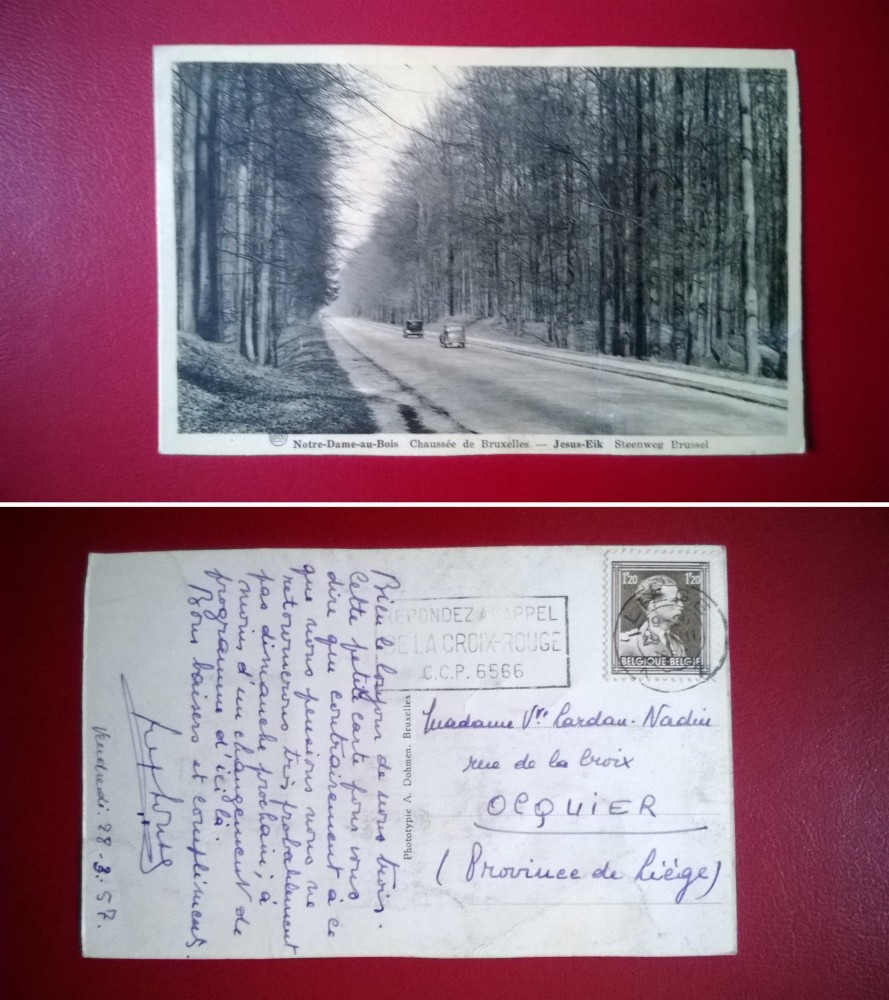 Notre-Dame-au-Bois Chaussée de Bruxelles — Jesus-Eik Steenweg Brussel
Bien le bonjour de nous trois.
Cette petite carte pour vous
dire que contrairement à ce
que nous pensions nous ne
retournerons très probablement
pas dimanche prochain, à
moins d'un changement de
programme d'ici là.
Bons baisers et compliments.
Vendredi 28-3.57.
REPONDEZ A L'APPEL
DE LA CROIX-ROUGE
C.C.P. 6566
1F20 1F20
BELGIQUE-BELGIE
Phototypie A. Dohmen, Bruxelles
Madame Vve Lardau-Nadin
rue de la Croix
OCQUIER
(Province de Liége)